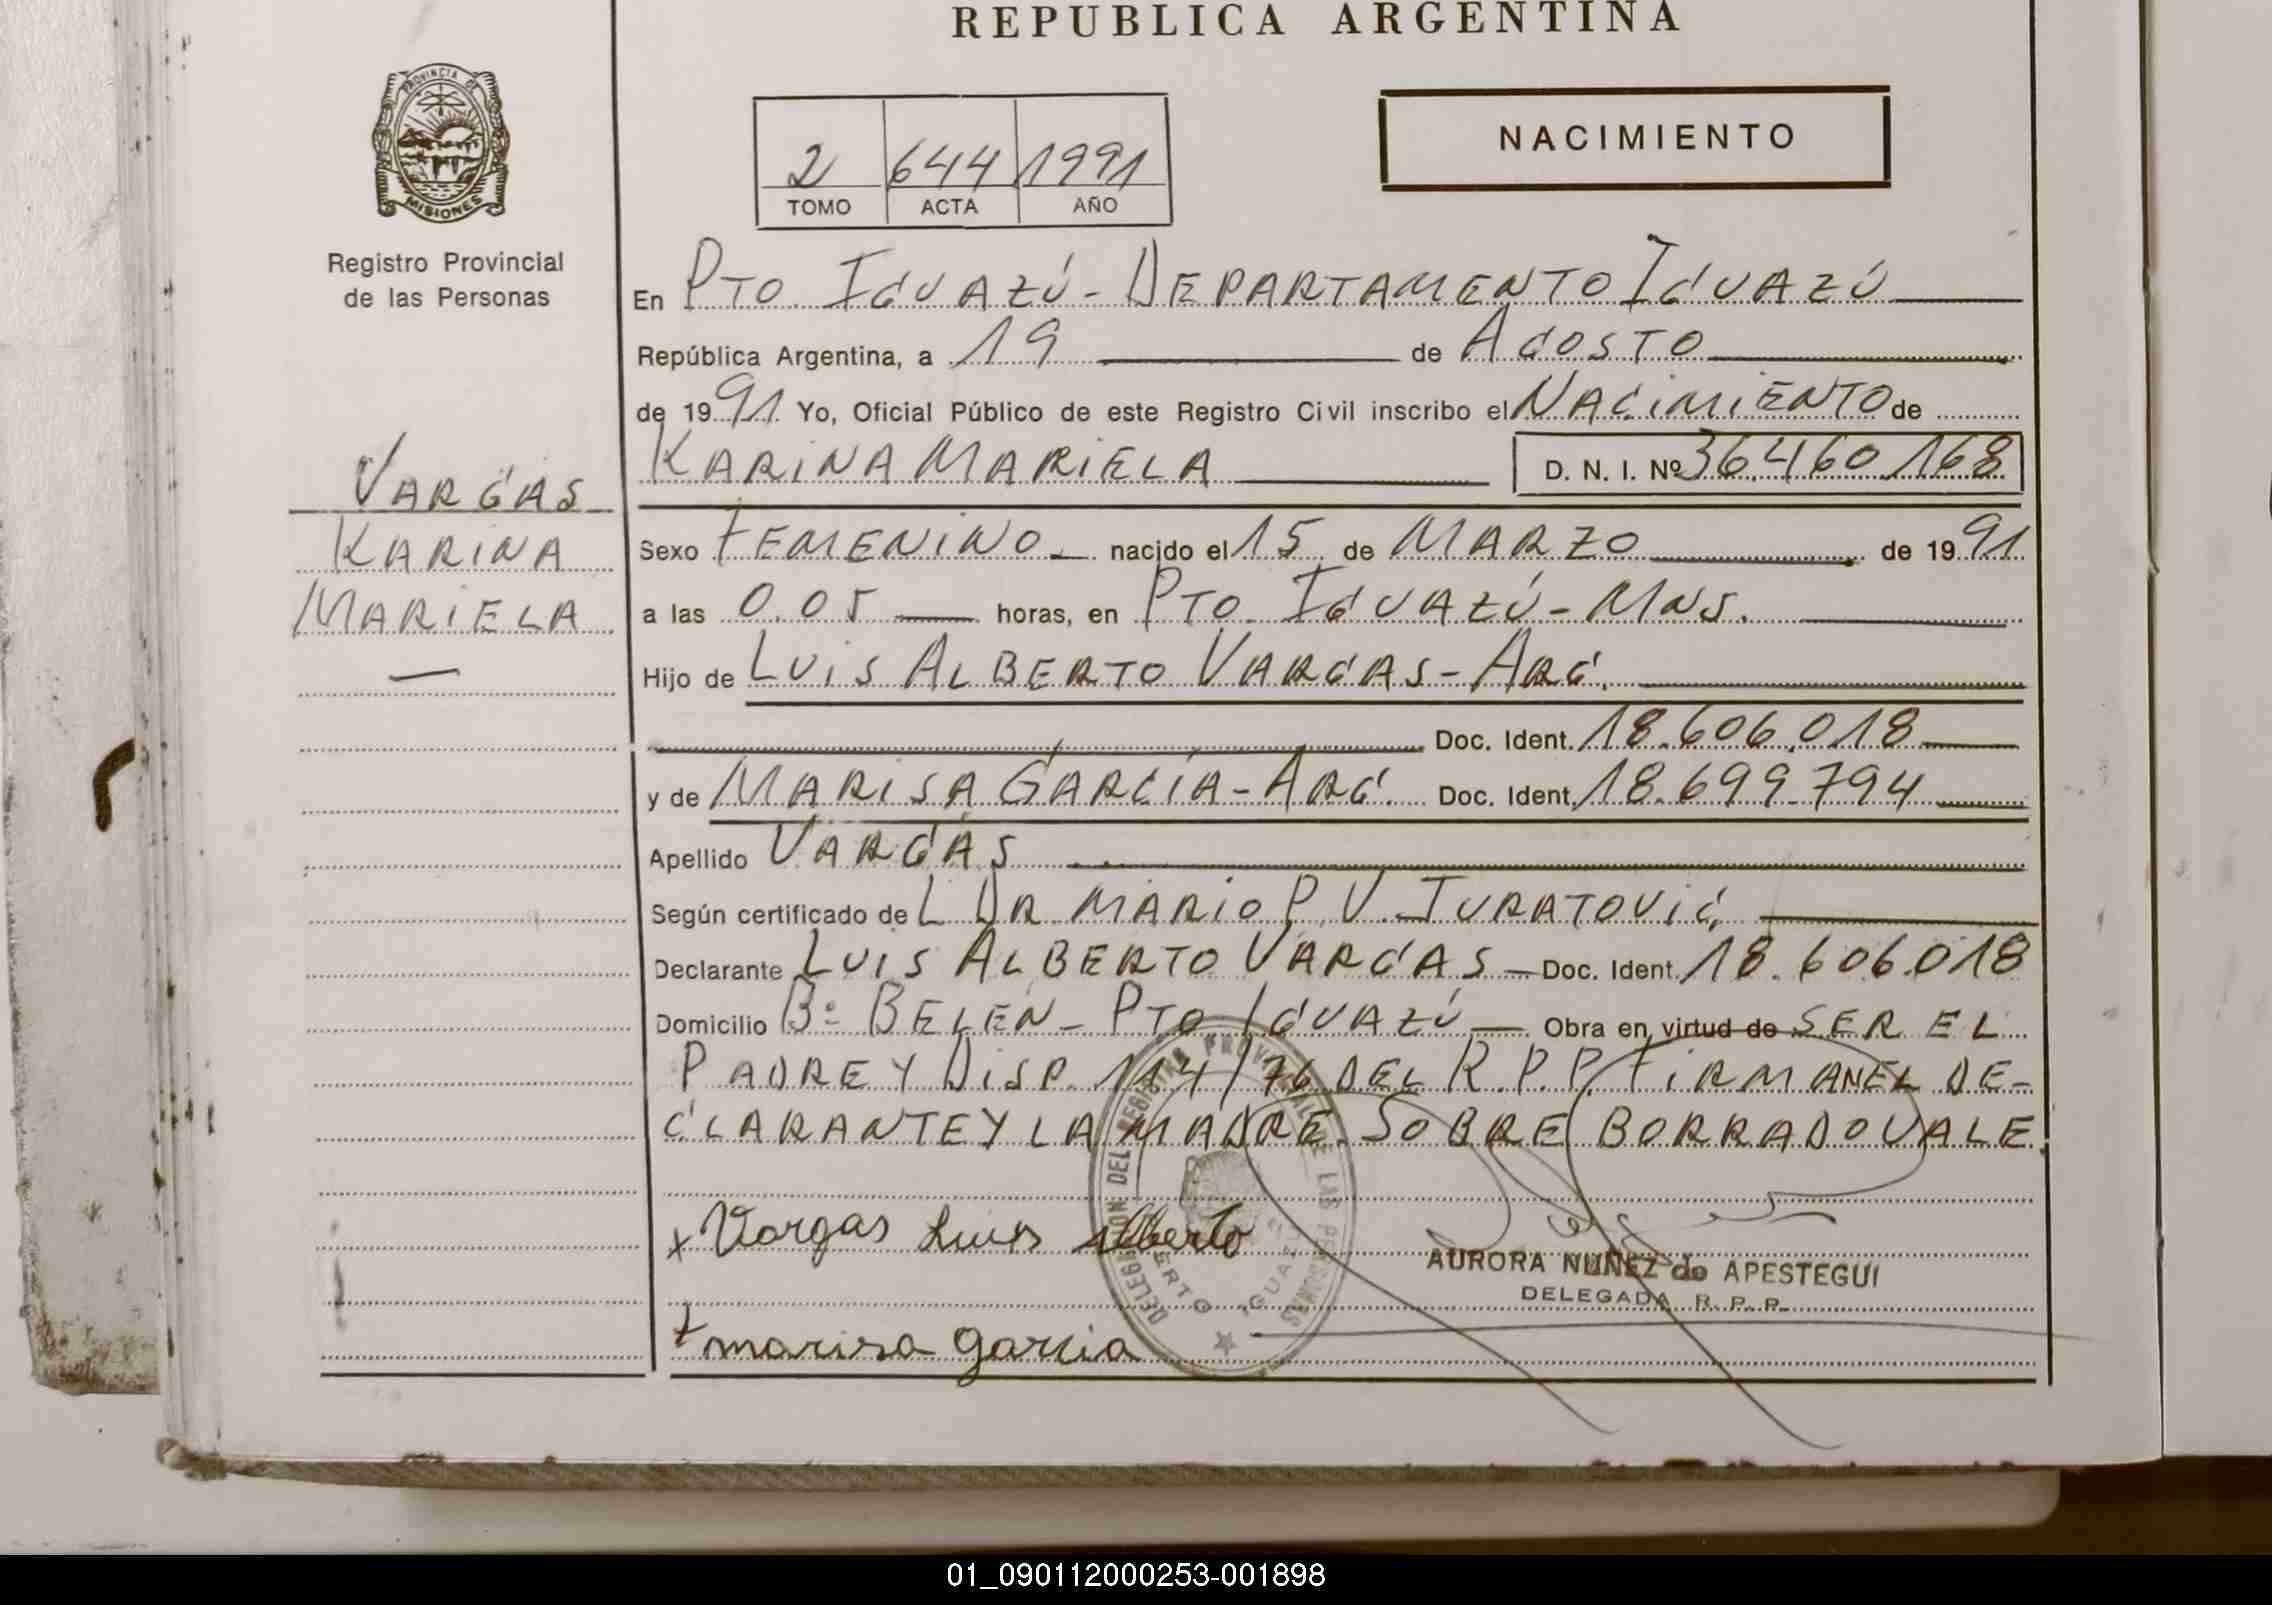 REPUBLICA ARGENTINA
PROVINCIA DE
MISIONES
Registro Provincial
de las Personas
NACIMIENTO
2 644 1991
TOMO ACTA AÑO
En PTO. IGUAZÚ - DEPARTAMENTO IGUAZÚ
República Argentina, a 19 de AGOSTO
de 1991 Yo, Oficial Público de este Registro Civil inscribo el NACIMIENTO de
KARINA MARIELA D. N. I. Nº 36.460.168
VARGAS
KARINA
MARIELA
Sexo FEMENINO nacido el 15 de MARZO de 1991
a las 0.05 horas, en PTO. IGUAZÚ - MNS.
Hijo de LUIS ALBERTO VARGAS - ARG.
Doc. Ident. 18.606.018
y de MARISA GARCÍA - ARG. Doc. Ident. 18.699.794
Apellido VARGAS
Según certificado de L DR. MARIO P. V. JURATOVIC.
Declarante LUIS ALBERTO VARGAS - Doc. Ident. 18.606.018
Domicilio Bº BELÉN - PTO IGUAZÚ Obra en virtud de SER EL
PADRE Y DISP. 114/76 DEL R.P.P. FIRMAN EL DE-
CLARANTE Y LA MADRE. SOBRE BORRADO VALE.
DELEGACION DEL REGISTRO PROVINCIAL DE LAS PERSONAS
PUERTO IGUAZU
x Vargas Luis Alberto
AURORA NUÑEZ de APESTEGUI
DELEGADA R. P. P.
x marisa garcia
01_090112000253-001898